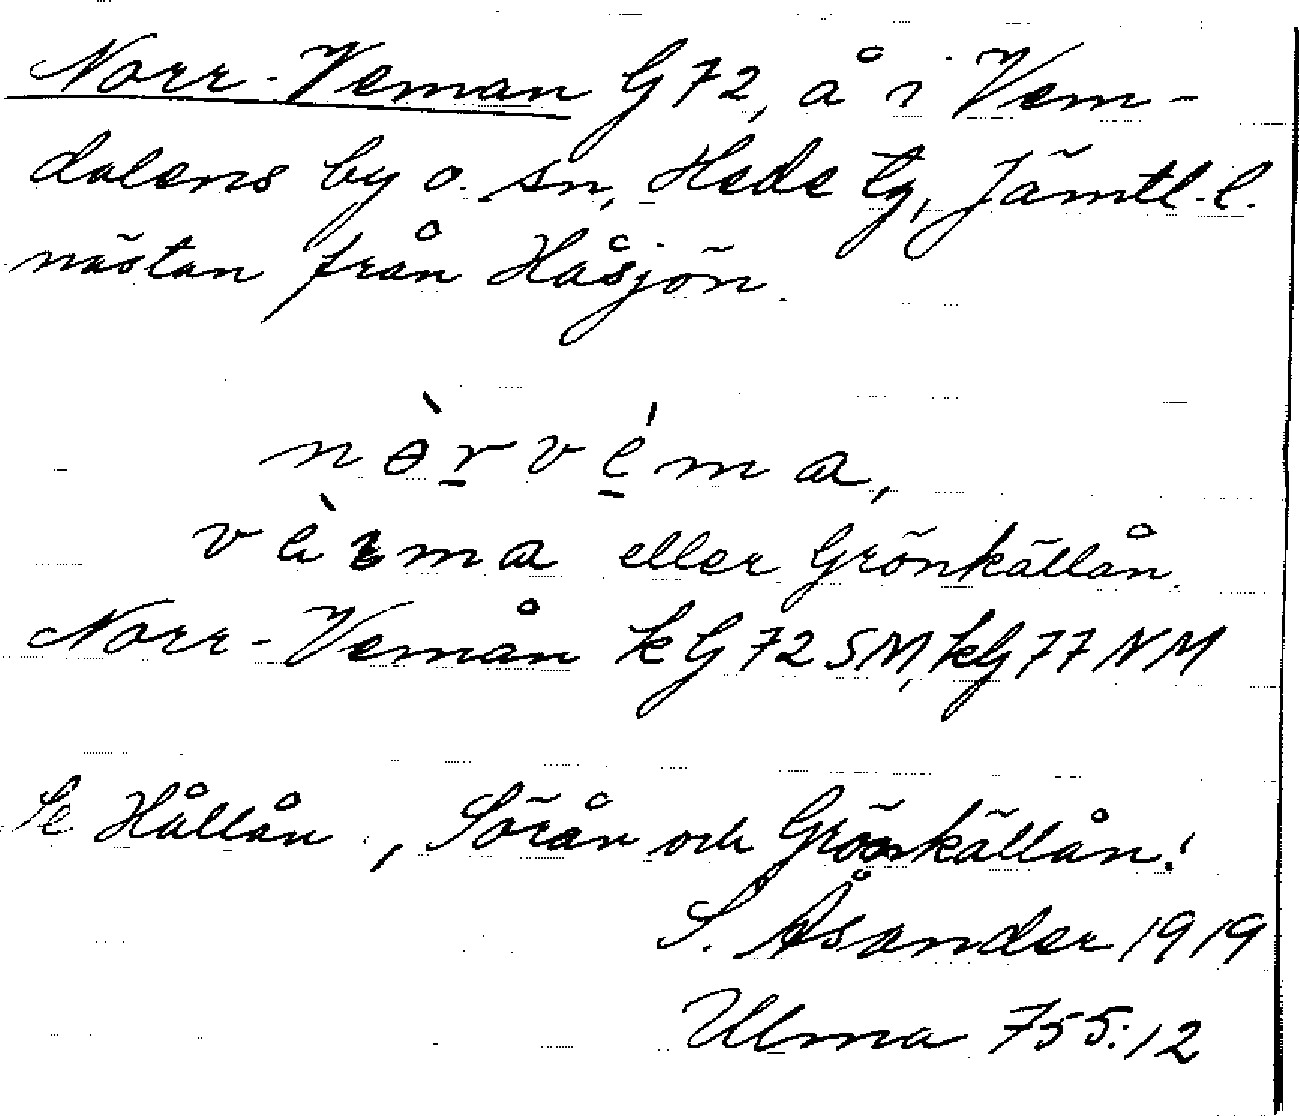 Norr-Veman G72, å i Vem-
dalens by o. sn, Hede tg, Jämtl. l.
nästan från Håsjön.
nòrvéma,
eller Grönkällån.
Norr-Vemån kG72SM, kG77NM
Se Hållån, Sörån och Grönkällån!
S. Åsander 1919
Ulma 755:12